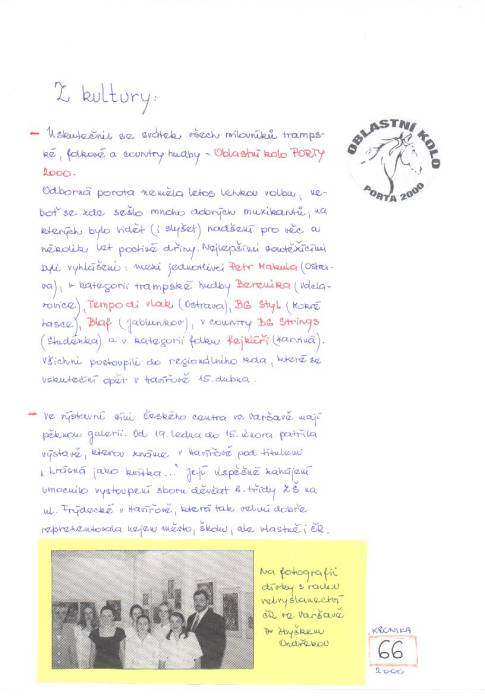 Z kultury:
- Uskutečnil se svátek všech milovníků tramps-
ké, folkové a country hudby - Oblastní kolo PORTY
2000.
OBLASTNÍ KOLO
PORTA 2000
Odborná porota neměla letos lehkou volbu, ne-
boť se zde sešlo mnoho dobrých muzikantů, na
kterých bylo vidět (i slyšet) nadšení pro věc a
několik let poctivé dřiny. Nejlepšími soutěžícími
byli vyhlášeni: mezi jednotlivci Petr Makula (Ostra-
va), v kategorii trampské hudby Berenika (Václa-
rovice), Tempo di vlak (Ostrava), BG Styl (Horní
Lasce), Blaf (Jablunkov), v country BG Strings
(Studénka) a v kategorii folku Fejkúři (Karviná).
Všichni postoupili do regionálního kola, které se
uskuteční opět v Havířově 15. dubna.
- Ve výstavní síni Českého centra ve Varšavě mají
pěknou galerii. Od 19. ledna do 15. února patřila
výstavě, kterou známe v Havířově pod titulem
„Krásná jako kvítka..." její úspěšné zahájení
umocnilo vystoupení sboru děvčat 6. třídy ZŠ na
ul. Frýdecké v Havířově, která tak velmi dobře
reprezentovala nejen město, školu, ale vlastně i ČR.
Na fotografii
dívky s radou
velvyslanectví
ČR ve Varšavě
Dr Zbyškem
Ondřekou
KRONIKA
66
2000